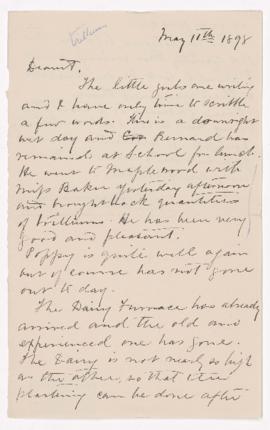 Trilliums
May 11th 1898
Dearest,
The little girls are writing
and I have only time to scribble
a few words. This is a downright
wet day and Bernard has
remained at School for lunch.
He went to Maplewood with
Miss Baker yesterday afternoon
and brought back quantities
of Trilliums. He has been very
good and pleasant.
Poppy is quite well again
but of course has not gone
out to day.
The Dairy Furnace has already
arrived and the old and
experienced one has gone.
The Dairy is not nearly so high
as the other, so that the
plastering can be done after